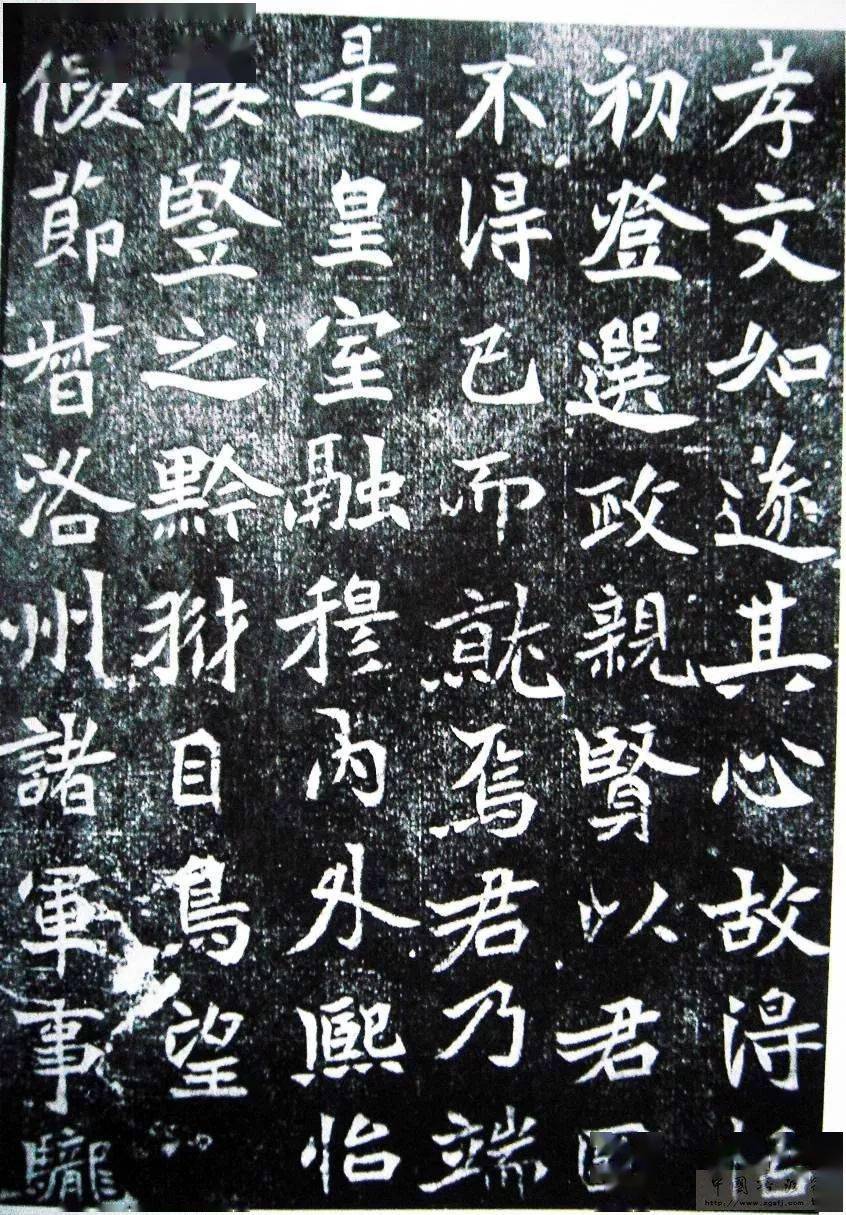 孝文如遂其心故得
初登選政親賢以君
不得已而就焉君乃端
是皇室融穆内外熙怡
豎之黔豺目鳥望
假節督洛州諸軍事驤
中國書法